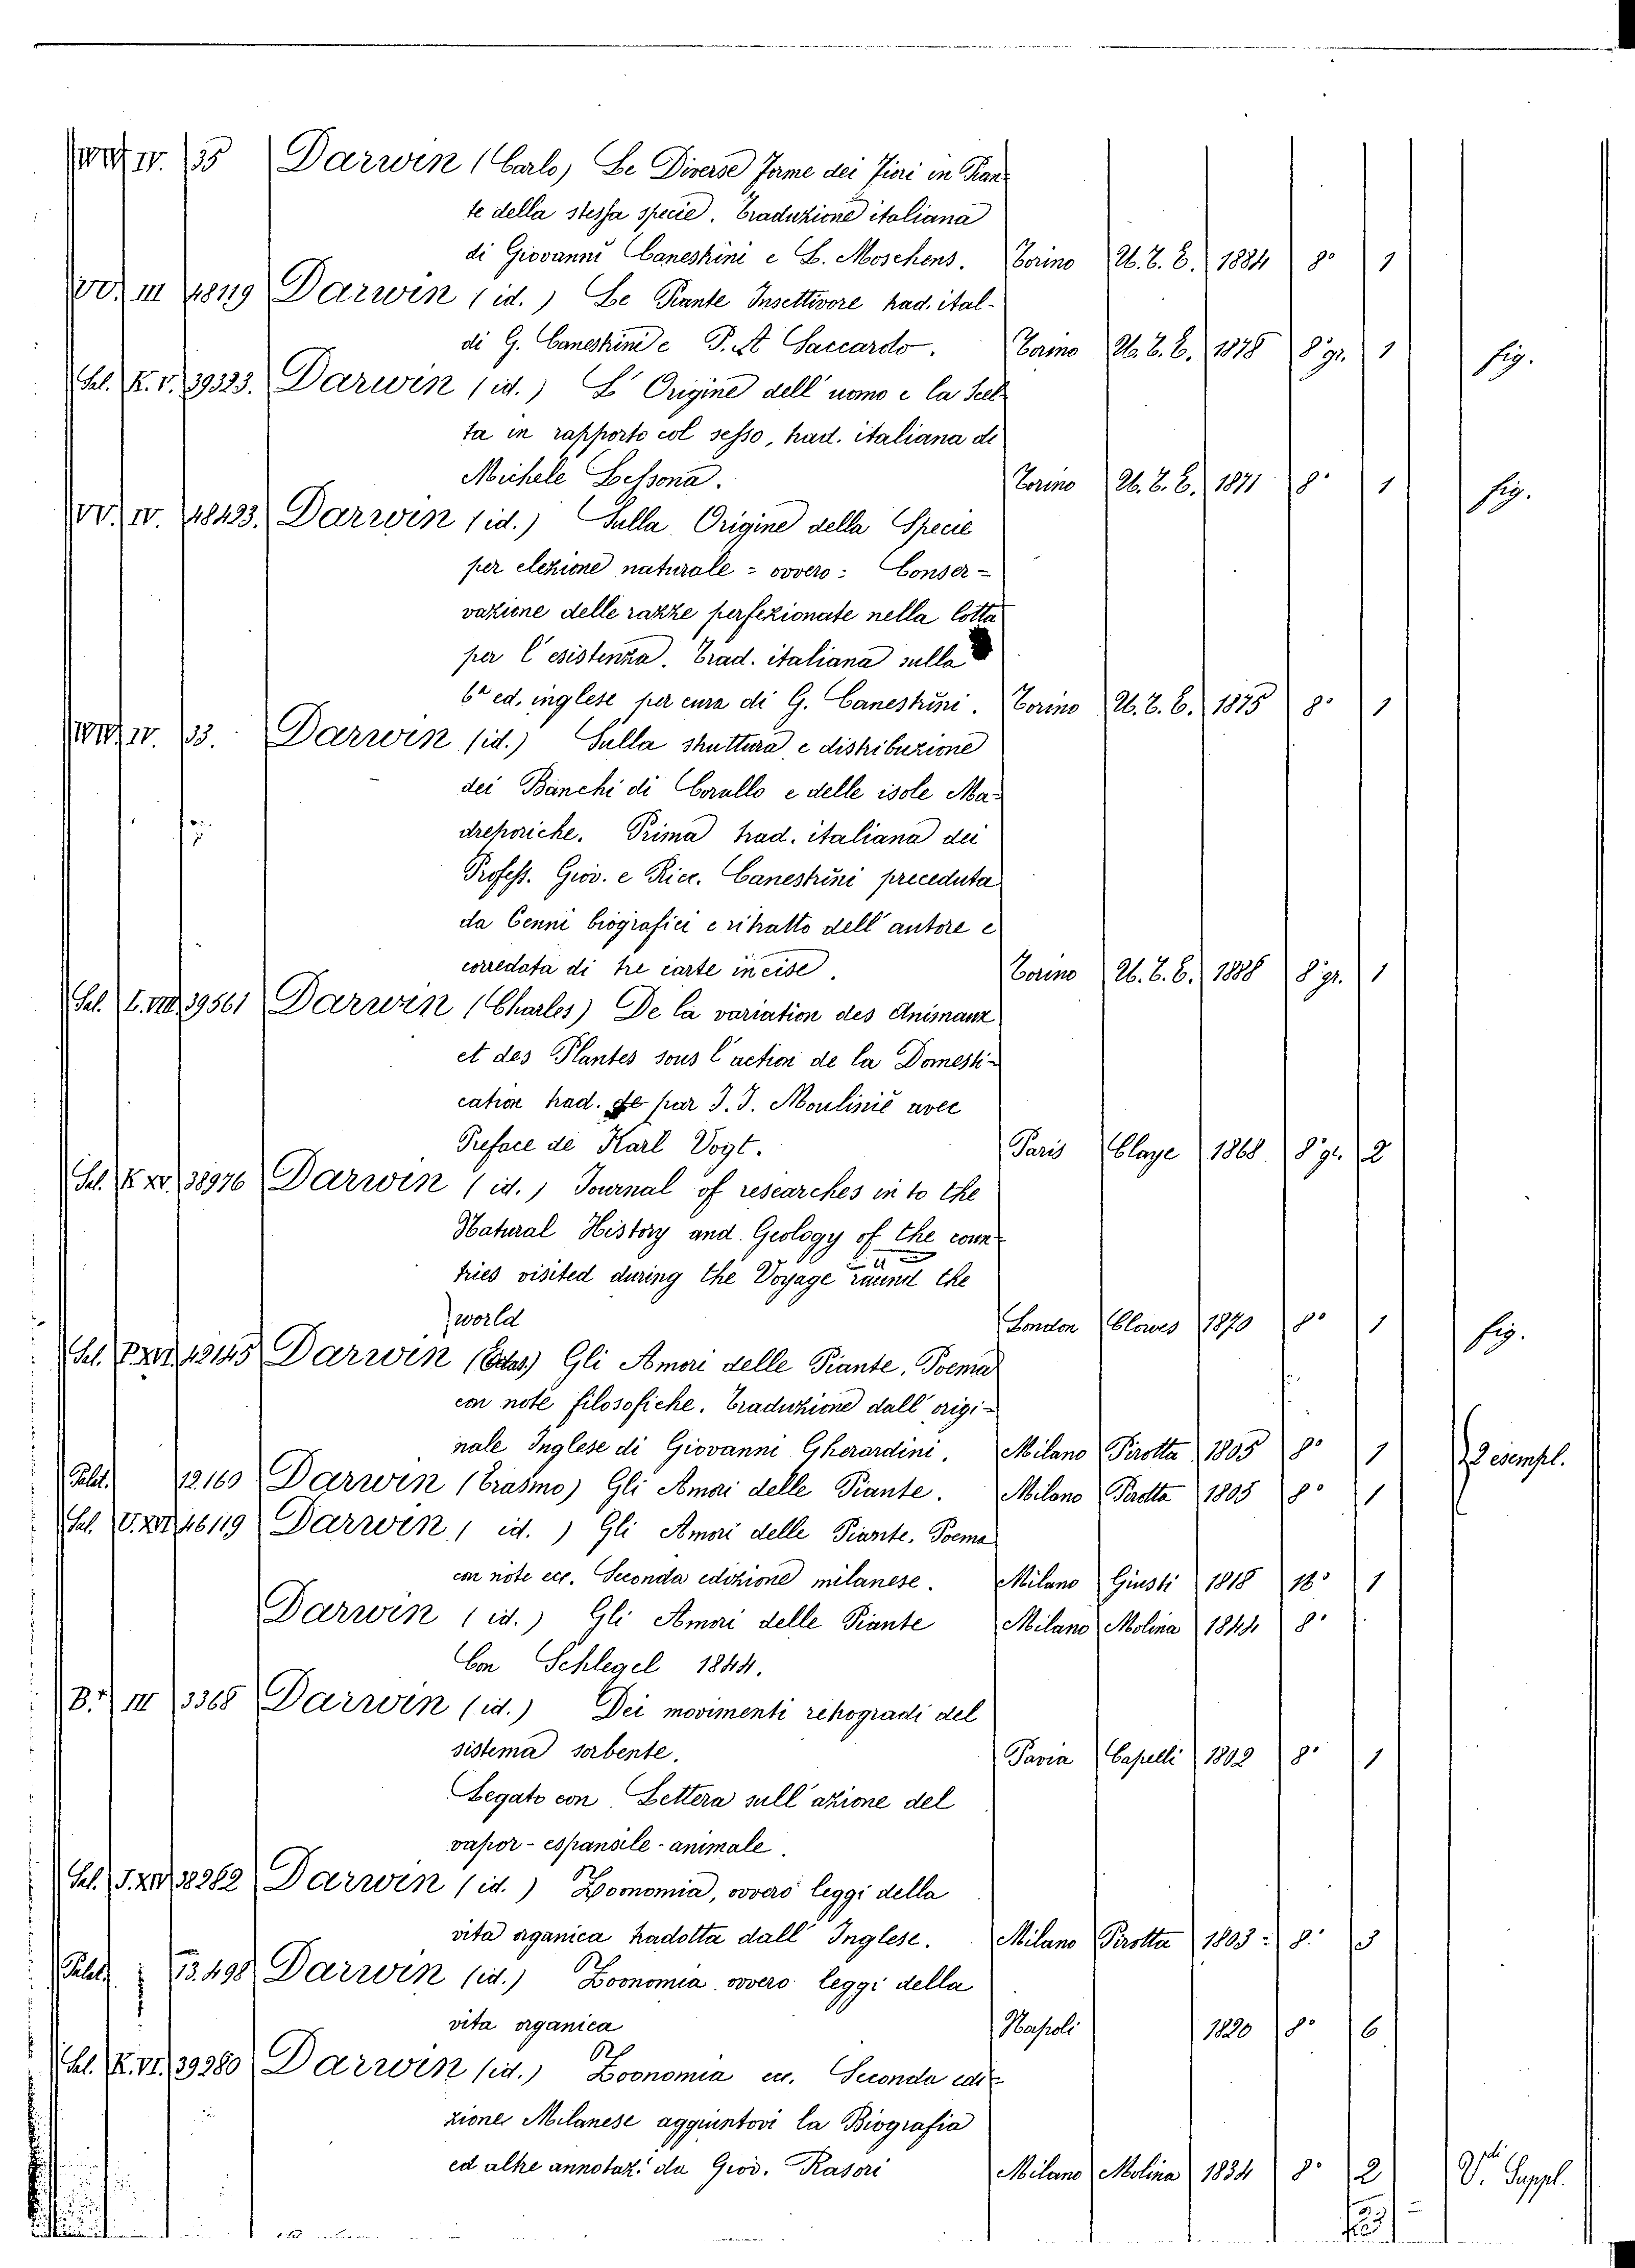 IV. 35 Darwin (Carlo) Le Diverse Forme dei Fiori in Pian-
te della stessa specie. Traduzione italiana
di Giovanni Canestrini e L. Moschens. Torino U. T. E. 1884 8° 1
VV. III 48119 Darwin (id.) Le Piante Insettivore trad. ital-
di G. Canestrini e P. A Saccardo. Torino U. T. E. 1878 8° gr. 1 fig.
Sal. K. V. 39323. Darwin (id.) L' Origine dell' uomo e la Scel-
ta in rapporto col sesso, trad. italiana di
Michele Lessona. Torino U. T. E. 1871 8° 1 fig.
VV. IV. 48423. Darwin (id.) Sulla Origine della Specie
per elezione naturale - ovvero: Conser-
vazione delle razze perfezionate nella lotta
per l'esistenza. Trad. italiana sulla
6ª ed. inglese per cura di G. Canestrini. Torino U. T. E. 1875 8° 1
IV. 33. Darwin (id.) Sulla struttura e distribuzione
dei Banchi di Corallo e delle isole Ma-
dreporiche. Prima trad. italiana dei
Profess. Giov. e Ricc. Canestrini preceduta
da Cenni biografici e ritratto dell' autore e
corredata di tre carte incise. Torino U. T. E. 1888 8° gr. 1
Sal. I. VIII 39561 Darwin (Charles) De la variation des Animaux
et des Plantes sous l'action de la Domesti-
cation trad. par J. J. Moulinié avec
Preface de Karl Vogt. Paris Claye 1868. 8° gr. 2
Sal. K XV. 38976 Darwin (id.) Journal of researches in to the
Natural History and Geology of the coun-
tries visited during the Voyage raund the
world London Clowes 1870 8° 1 fig.
Sal. 42145 Darwin Gli Amori delle Piante. Poema
con note filosofiche. Traduzione dall' origi-
nale Inglese di Giovanni Gherardini. Milano Pirotta 1805 8° 1 2 esempl.
Palat. 12.160 Darwin (Erasmo) Gli Amori delle Piante. Milano Pirotta 1805 8° 1
Sal. V. XVI 46119 Darwin (id.) Gli Amori delle Piante. Poema
con note ecc. Seconda edizione milanese. Milano Giusti 1818 18° 1
Darwin (id.) Gli Amori delle Piante Milano Molina 1844 8°
Con Schlegel 1844.
B.ª III 3368 Darwin (id.) Dei movimenti retrogradi del
sistema sorbente. Pavia Capelli 1802 8° 1
Legato con Lettera sull' azione del
vapor-espansile-animale.
Sal. 38282 Darwin (id.) Zoonomia, ovvero leggi della
vita organica tradotta dall' Inglese. Milano Pirotta 1803 8° 3
Palat. 13.498 Darwin (id.) Zoonomia ovvero leggi della
vita organica Napoli 1820 8° 6
Sal. K. VI. 39280 Darwin (id.) Zoonomia ecc. Seconda edi-
zione Milanese aggiuntovi la Biografia
ed altre annotaz.i da Giov. Rasori Milano Molina 1834 8° 2 Suppl.